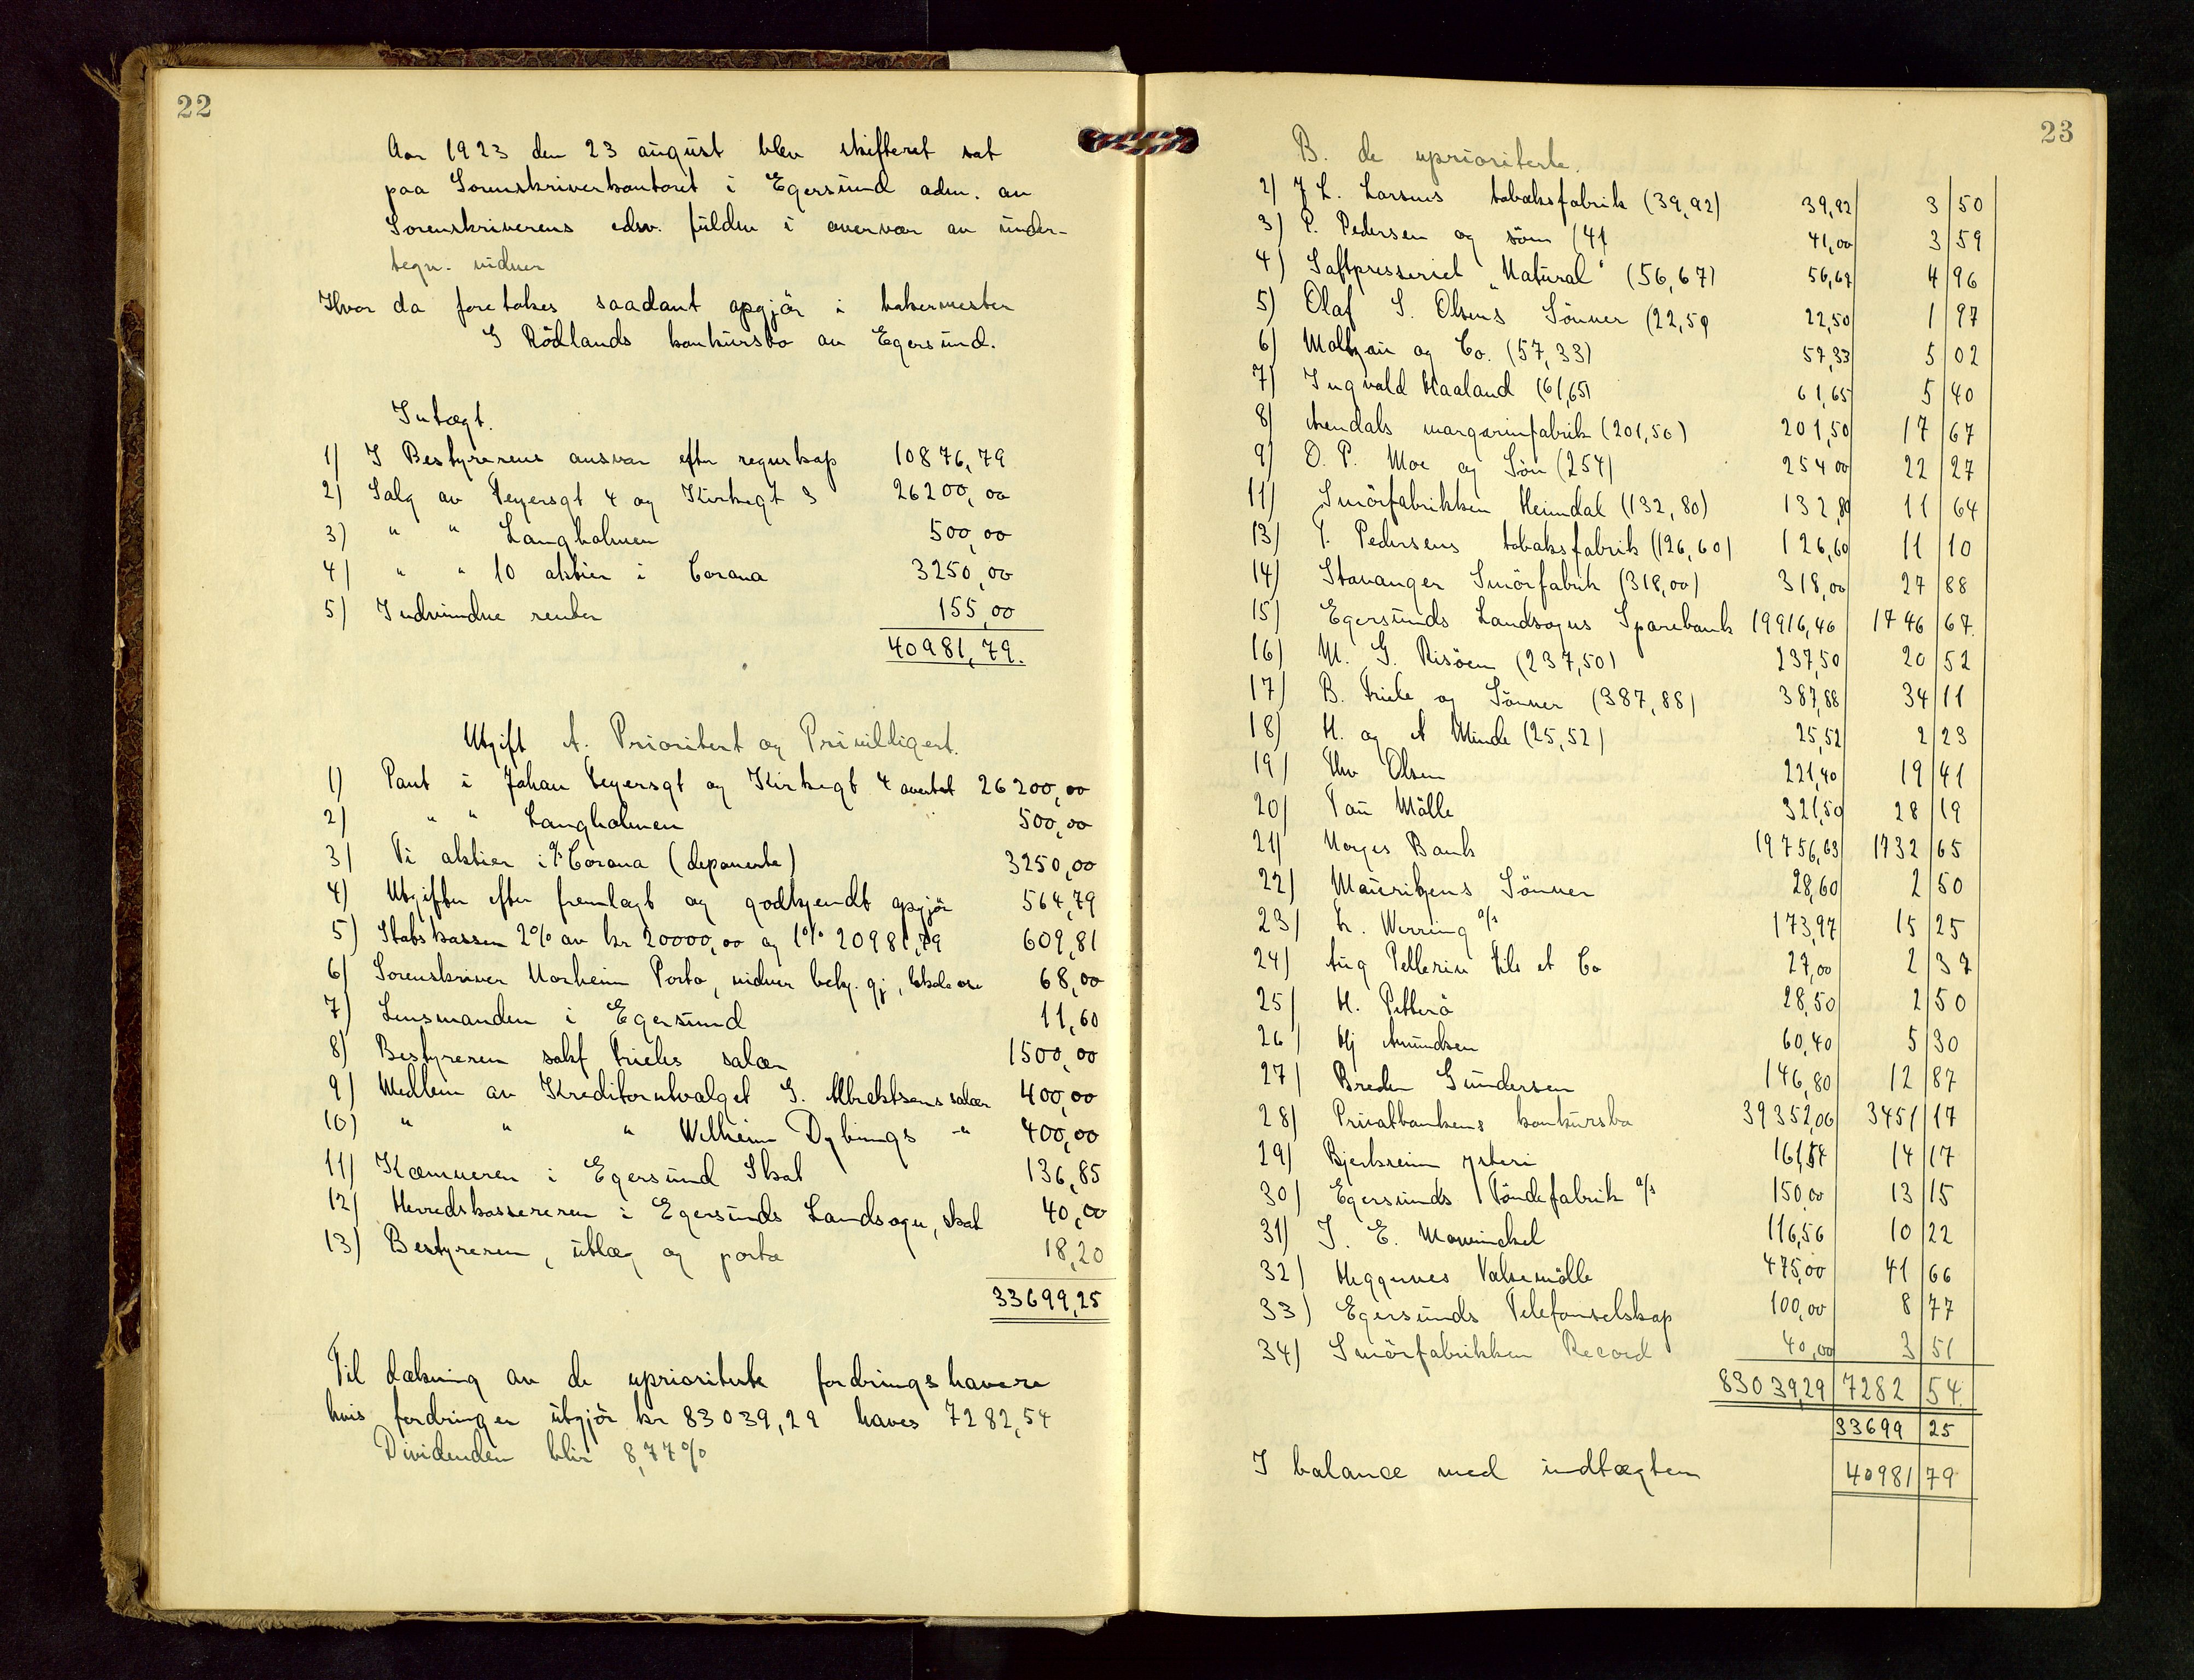 22
Aar 1923 den 23 august blev skifteret sat
paa Sorenskriverkontoret i Egersund adm. av
Sorenskriverens edsv. fuldm i overvær av under-
tegn. vidner
Hvor da foretokes saadant opgjör i bakermester
G Rödlands konkursbo av Egersund.
Intægt.
1) I Bestyrerens ansvar efter regnskap 10876,79
2) Salg av Feyersgt 4 og Kirkegt 3 26200,00
3) " " Langholmen 500,00
4) " " 10 aktier i Corona 3250,00
5) Indvundne renter 155,00
40981,79.
Utgift A. Prioritert og Privilligert.
1) Pant i Johan Feyersgt og Kirkegt 4 avertert 26200,00
2) " " Langholmen 500,00
3) Ti aktier i A/S Corona (deponerte) 3250,00
4) Utgifter efter fremlagt og godkjendt opgjör 564,79
5) Statskassen 2% av kr 20000,00 og 1% 20981,79 609,81
6) Sorenskriver Norheim Porto, vidner bekj. gj, 68,00
7) Lensmanden i Egersund 11,60
8) Bestyreren sakf Frieles salær 1500,00
9) Medlem av Kreditorutvalget G. Albrektsens salær 400,00
10) " " " Wilhelm Dybings -" 400,00
11) Kæmneren i Egersund Skat 136,85
12) Herredskassereren i Egersunds Landsogn, skat 40,00
13) Bestyreren, utlæg og porto 18,20
33699,25
Til dækning av de uprioriterte fordringshavere
hvis fordringer utgjör kr 83039,29 haves 7282,54
Dividenden blir 8,77%
23
B. de uprioriterte.
2) J L. Larsens tobaksfabrik (39,92) 39,92 3 50
3) P. Pedersen og sön (41) 41,00 3 59
4) Saftpresseriet "Natural" (56,67) 56,67 4 96
5) Olaf S. Olsens Sönner (22,50) 22,50 1 97
6) Moltzau og Co. (57,33) 57,33 5 02
7) Ingvald Haaland (61,65) 61,65 5 40
8) Arendals margarinfabrik (201,50) 201,50 17 67
9) O. P. Moe og Sön (254) 254 00 22 27
11) Smörfabrikken Heimdal (132,80) 132,80 11 64
13) T. Pedersens tobaksfabrik (126,60) 126,60 11 10
14) Stavanger Smörfabrik (318,00) 318,00 27 88
15) Egersunds Landsogns Sparebank 19916,46 1746 67.
16) M. G. Risöen (237,50) 237,50 20 52
17) B. Friele og Sönner (387,88) 387,88 34 11
18) H. og A Minde (25,52) 25,52 2 23
19) Thv Olsen 221,40 19 41
20) Tau Mölle 321,50 28 19
21) Norges Bank 19756,63 1732 65
22) Mauritzens Sönner 28,60 2 50
23) Kr. Werring A/S 173,97 15 25
24) Aug Pellerin Fils et Co 27,00 2 37
25) H. Petterö 28,50 2 50
26) Hj Amundsen 60,40 5 30
27) Breder Gundersen 146,80 12 87
28) Privatbankens konkursbo 39352,06 3451 17
29) Bjerkreim ysteri 161,54 14 17
30) Egersunds Töndefabrik A/S 150,00 13 15
31) J. E. Mowinckel 116,56 10 22
32) Heggenes Valsemölle 475,00 41 66
33) Egersunds Telefonselskap 100,00 8 77
34) Smörfabrikken Record 40,00 3 51
83039,29 7282 54.
33699 25
I balance med indtægten 40981 79